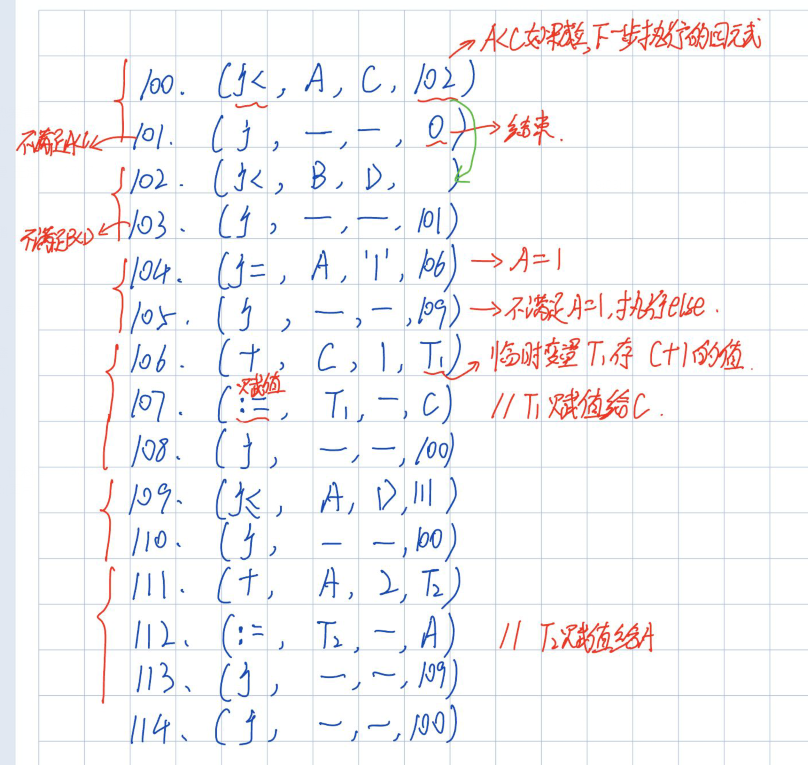 A<C如果真,下一步执行的四元式
100. (j<, A, C, 102)
不满足A<C 101. (j, —, —, 0) → 结束.
102. (j<, B, D, )
不满足B<D 103. (j, —, —, 101)
104. (j=, A, '1', 106) → A=1
105. (j, —, —, 109) → 不满足A=1,执行else.
106. (+, C, 1, T₁) 临时变量T₁存 C+1的值.
赋值
107. (:=, T₁, —, C) // T₁赋值给C.
108. (j, —, —, 100)
109. (j≤, A, D, 111)
110. (j, — —, 100)
111. (+, A, 2, T₂)
112. (:=, T₂, —, A) // T₂赋值给A
113. (j, —, —, 109)
114. (j, —, —, 100)